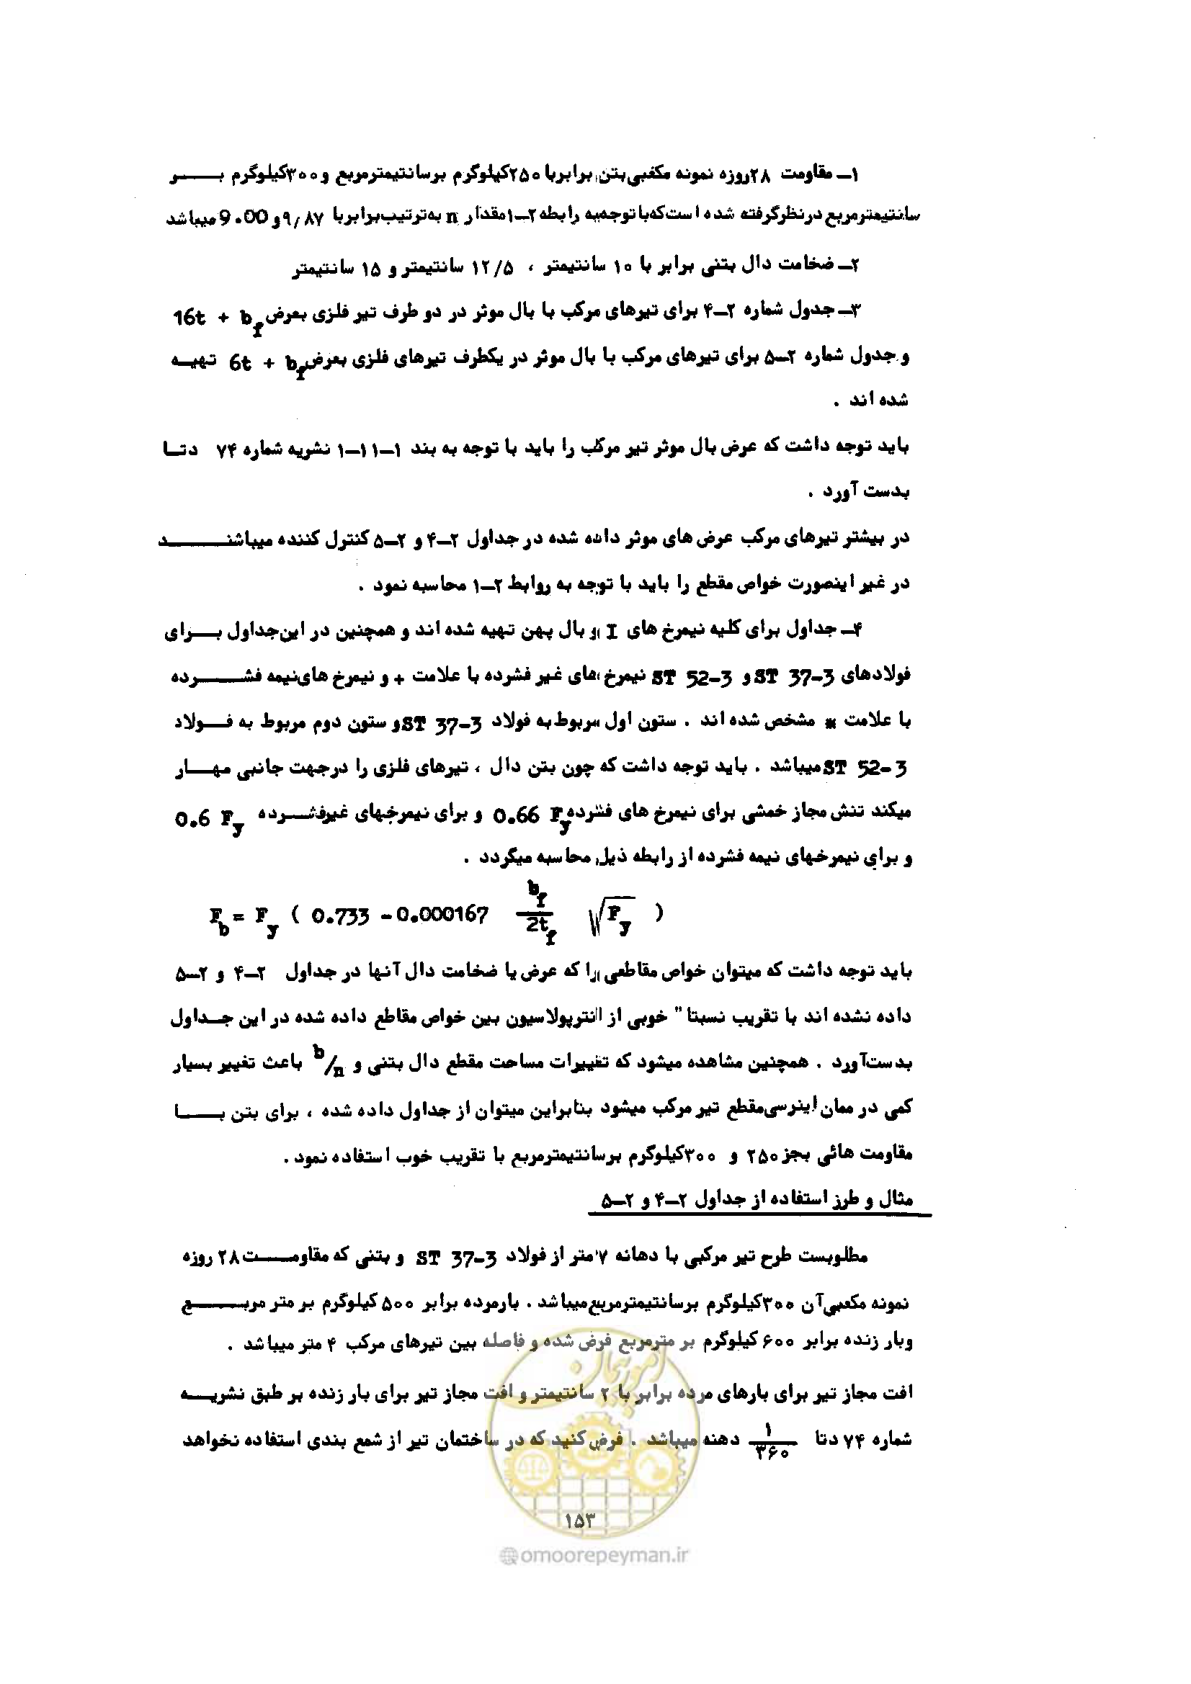 ۱ـ مقاومت ۲۸روزه نمونه مکعبی بتن برابربا ۲۵۰کیلوگرم برسانتیمترمربع و۳۰۰کیلوگرم بـــر
سانتیمترمربع درنظرگرفته شده است که با توجه به رابطه ۲ـ۱مقدار n به ترتیب برابربا ۹/۸۷ و 9.00 میباشد
۲ـ ضخامت دال بتنی برابر با ۱۰ سانتیمتر ، ۱۲/۵ سانتیمتر و ۱۵ سانتیمتر
۳ـ جدول شماره ۲ـ۴ برای تیرهای مرکب با بال موثر در دو طرف تیر فلزی بعرض 16t + b_f
و جدول شماره ۲ـ۵ برای تیرهای مرکب با بال موثر در یکطرف تیرهای فلزی بعرض 6t + b_f تهیـه
شده اند .
باید توجه داشت که عرض بال موثر تیر مرکب را باید با توجه به بند ۱ـ۱۱ـ۱ نشریه شماره ۷۴ دتـا
بدست آورد .
در بیشتر تیرهای مرکب عرض های موثر داده شده در جداول ۲ـ۴ و ۲ـ۵ کنترل کننده میباشنـــــد
در غیر اینصورت خواص مقطع را باید با توجه به روابط ۲ـ۱ محاسبه نمود .
۴ـ جداول برای کلیه نیمرخ های I و بال پهن تهیه شده اند و همچنین در این جداول بـــرای
فولادهای ST 37-3 و ST 52-3 نیمرخ های غیر فشرده با علامت + و نیمرخ های نیمه فشــــرده
با علامت * مشخص شده اند . ستون اول مربوط به فولاد ST 37-3 و ستون دوم مربوط به فـــولاد
ST 52-3 میباشد . باید توجه داشت که چون بتن دال ، تیرهای فلزی را درجهت جانبی مهـــار
میکند تنش مجاز خمشی برای نیمرخ های فشرده 0.66 F_y و برای نیمرخهای غیرفشـــرده 0.6 F_y
و برای نیمرخهای نیمه فشرده از رابطه ذیل محاسبه میگردد .
F_b = F_y ( 0.733 - 0.000167 b_f/2t_f √F_y )
باید توجه داشت که میتوان خواص مقاطعی را که عرض یا ضخامت دال آنها در جداول ۲ـ۴ و ۲ـ۵
داده نشده اند با تقریب نسبتا" خوبی از انترپولاسیون بین خواص مقاطع داده شده در این جــداول
بدست آورد . همچنین مشاهده میشود که تغییرات مساحت مقطع دال بتنی و b/n باعث تغییر بسیار
کمی در ممان اینرسی مقطع تیر مرکب میشود بنابراین میتوان از جداول داده شده ، برای بتن بـــا
مقاومت هائی بجز ۲۵۰ و ۳۰۰کیلوگرم برسانتیمترمربع با تقریب خوب استفاده نمود .
مثال و طرز استفاده از جداول ۲ـ۴ و ۲ـ۵
مطلوبست طرح تیر مرکبی با دهانه ۷ متر از فولاد ST 37-3 و بتنی که مقاومـــت ۲۸ روزه
نمونه مکعبی آن ۳۰۰کیلوگرم برسانتیمترمربع میباشد . بارمرده برابر ۵۰۰ کیلوگرم بر متر مربـــع
وبار زنده برابر ۶۰۰ کیلوگرم بر مترمربع فرض شده و فاصله بین تیرهای مرکب ۴ متر میباشد .
افت مجاز تیر برای بارهای مرده برابر با ۲ سانتیمتر و افت مجاز تیر برای بار زنده بر طبق نشریـــه
شماره ۷۴ دتا ۱/۳۶۰ دهنه میباشد . فرض کنید که در ساختمان تیر از شمع بندی استفاده نخواهد
امور پیمان
۱۵۳
@omoorepeyman.ir